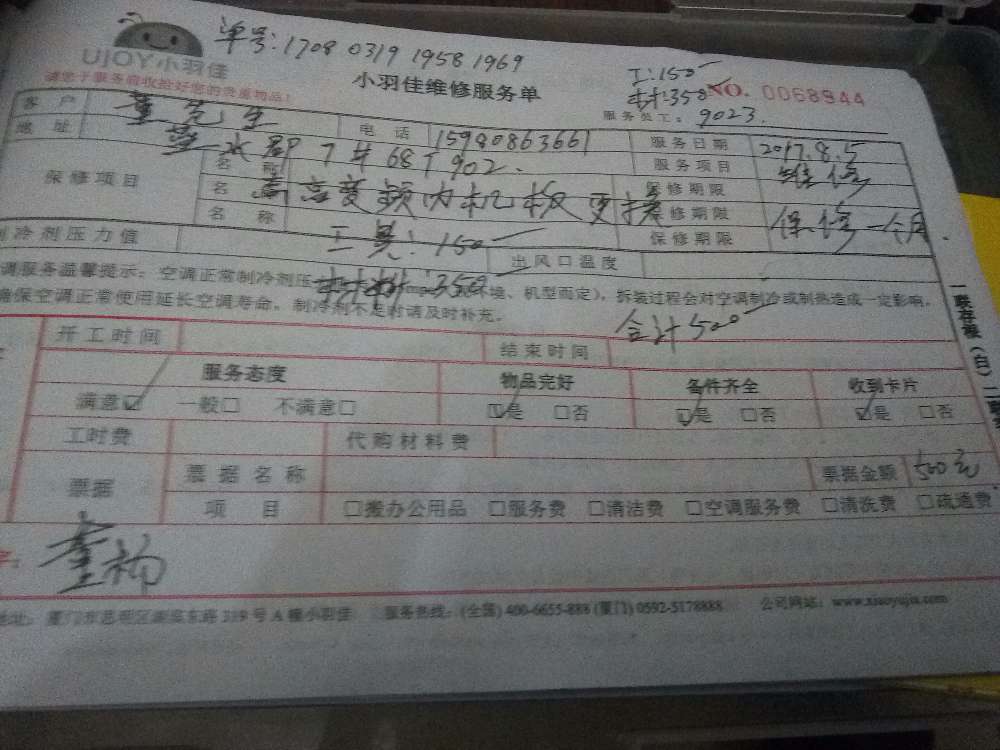 单号:1708 0319 1958 1969
UJOY小羽佳
工:150
材:350
NO. 0068944
请您于服务前收拾好您的贵重物品!
小羽佳维修服务单
服务员工: 9023.
客 户 董先生 电 话 15980863661 服务日期 2017.8.5
地 址 水郡7#68T902. 服务项目 维修
保修项目 名 称 保修期限
名 变频内机板更换 保修期限 保修一个月.
名 称 保修期限
制冷剂压力值 工具:150 出风口温度
调服务温馨提示:空调正常制冷剂压 材料:350 环境、机型而定),拆装过程会对空调制冷或制热造成一定影响,
确保空调正常使用延长空调寿命,制冷剂不足时请及时补充。 合计500
开工时间 结束时间
服务态度 物品完好 备件齐全 收到卡片
满意☑ 一般□ 不满意□ ☑是 □否 ☑是 □否 ☑是 □否
工时费 代购材料费
票据 票据名称 票据金额 500元
项 目 □搬办公用品 □服务费 □清洁费 □空调服务费 □清洗费 □疏通费
字:
地址: 厦门市思明区湖滨东路319号A幢小羽佳 服务热线:(全国) 400-6655-888 (厦门) 0592-5178888 公司网站:www.xiaoyujia.com
一联存根(白)二联